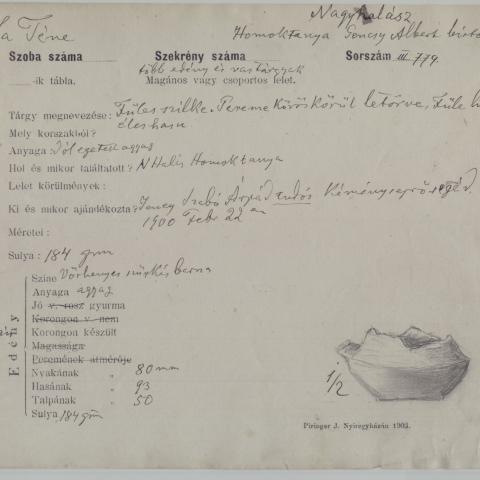 La Téne
Nagyhalász
Homoktanya Gencsy Albert birto
Szoba száma
Szekrény száma
Sorszám III. 779.
több edény és vastárgyak
-ik tábla.
Magános vagy csoportos lelet.
Tárgy megnevezése: Füles szilke. Pereme köröskörül letörve, Füle
éleshasu
Mely korszakból?
Anyaga: Jól égetett agyag
Hol és mikor találtatott? N Halás Homoktanya
Lelet körülmények:
Ki és mikor ajándékozta? Jeney Szabó Árpád Kéményseprő segéd.
1900 Febr 22 án
Méretei:
Sulya: 184 grm
Edény
Szine Vörhenyes szürkés barna
Anyaga agyag
Jó v. rosz gyurma
Korongon v. nem
Korongon készült
Magassága
Peremének átmérője
Nyakának " 80 mm
Hasának " 93
Talpának " 50
Sulya 184 grm
1/2
Piringer J. Nyiregyházán 1903.